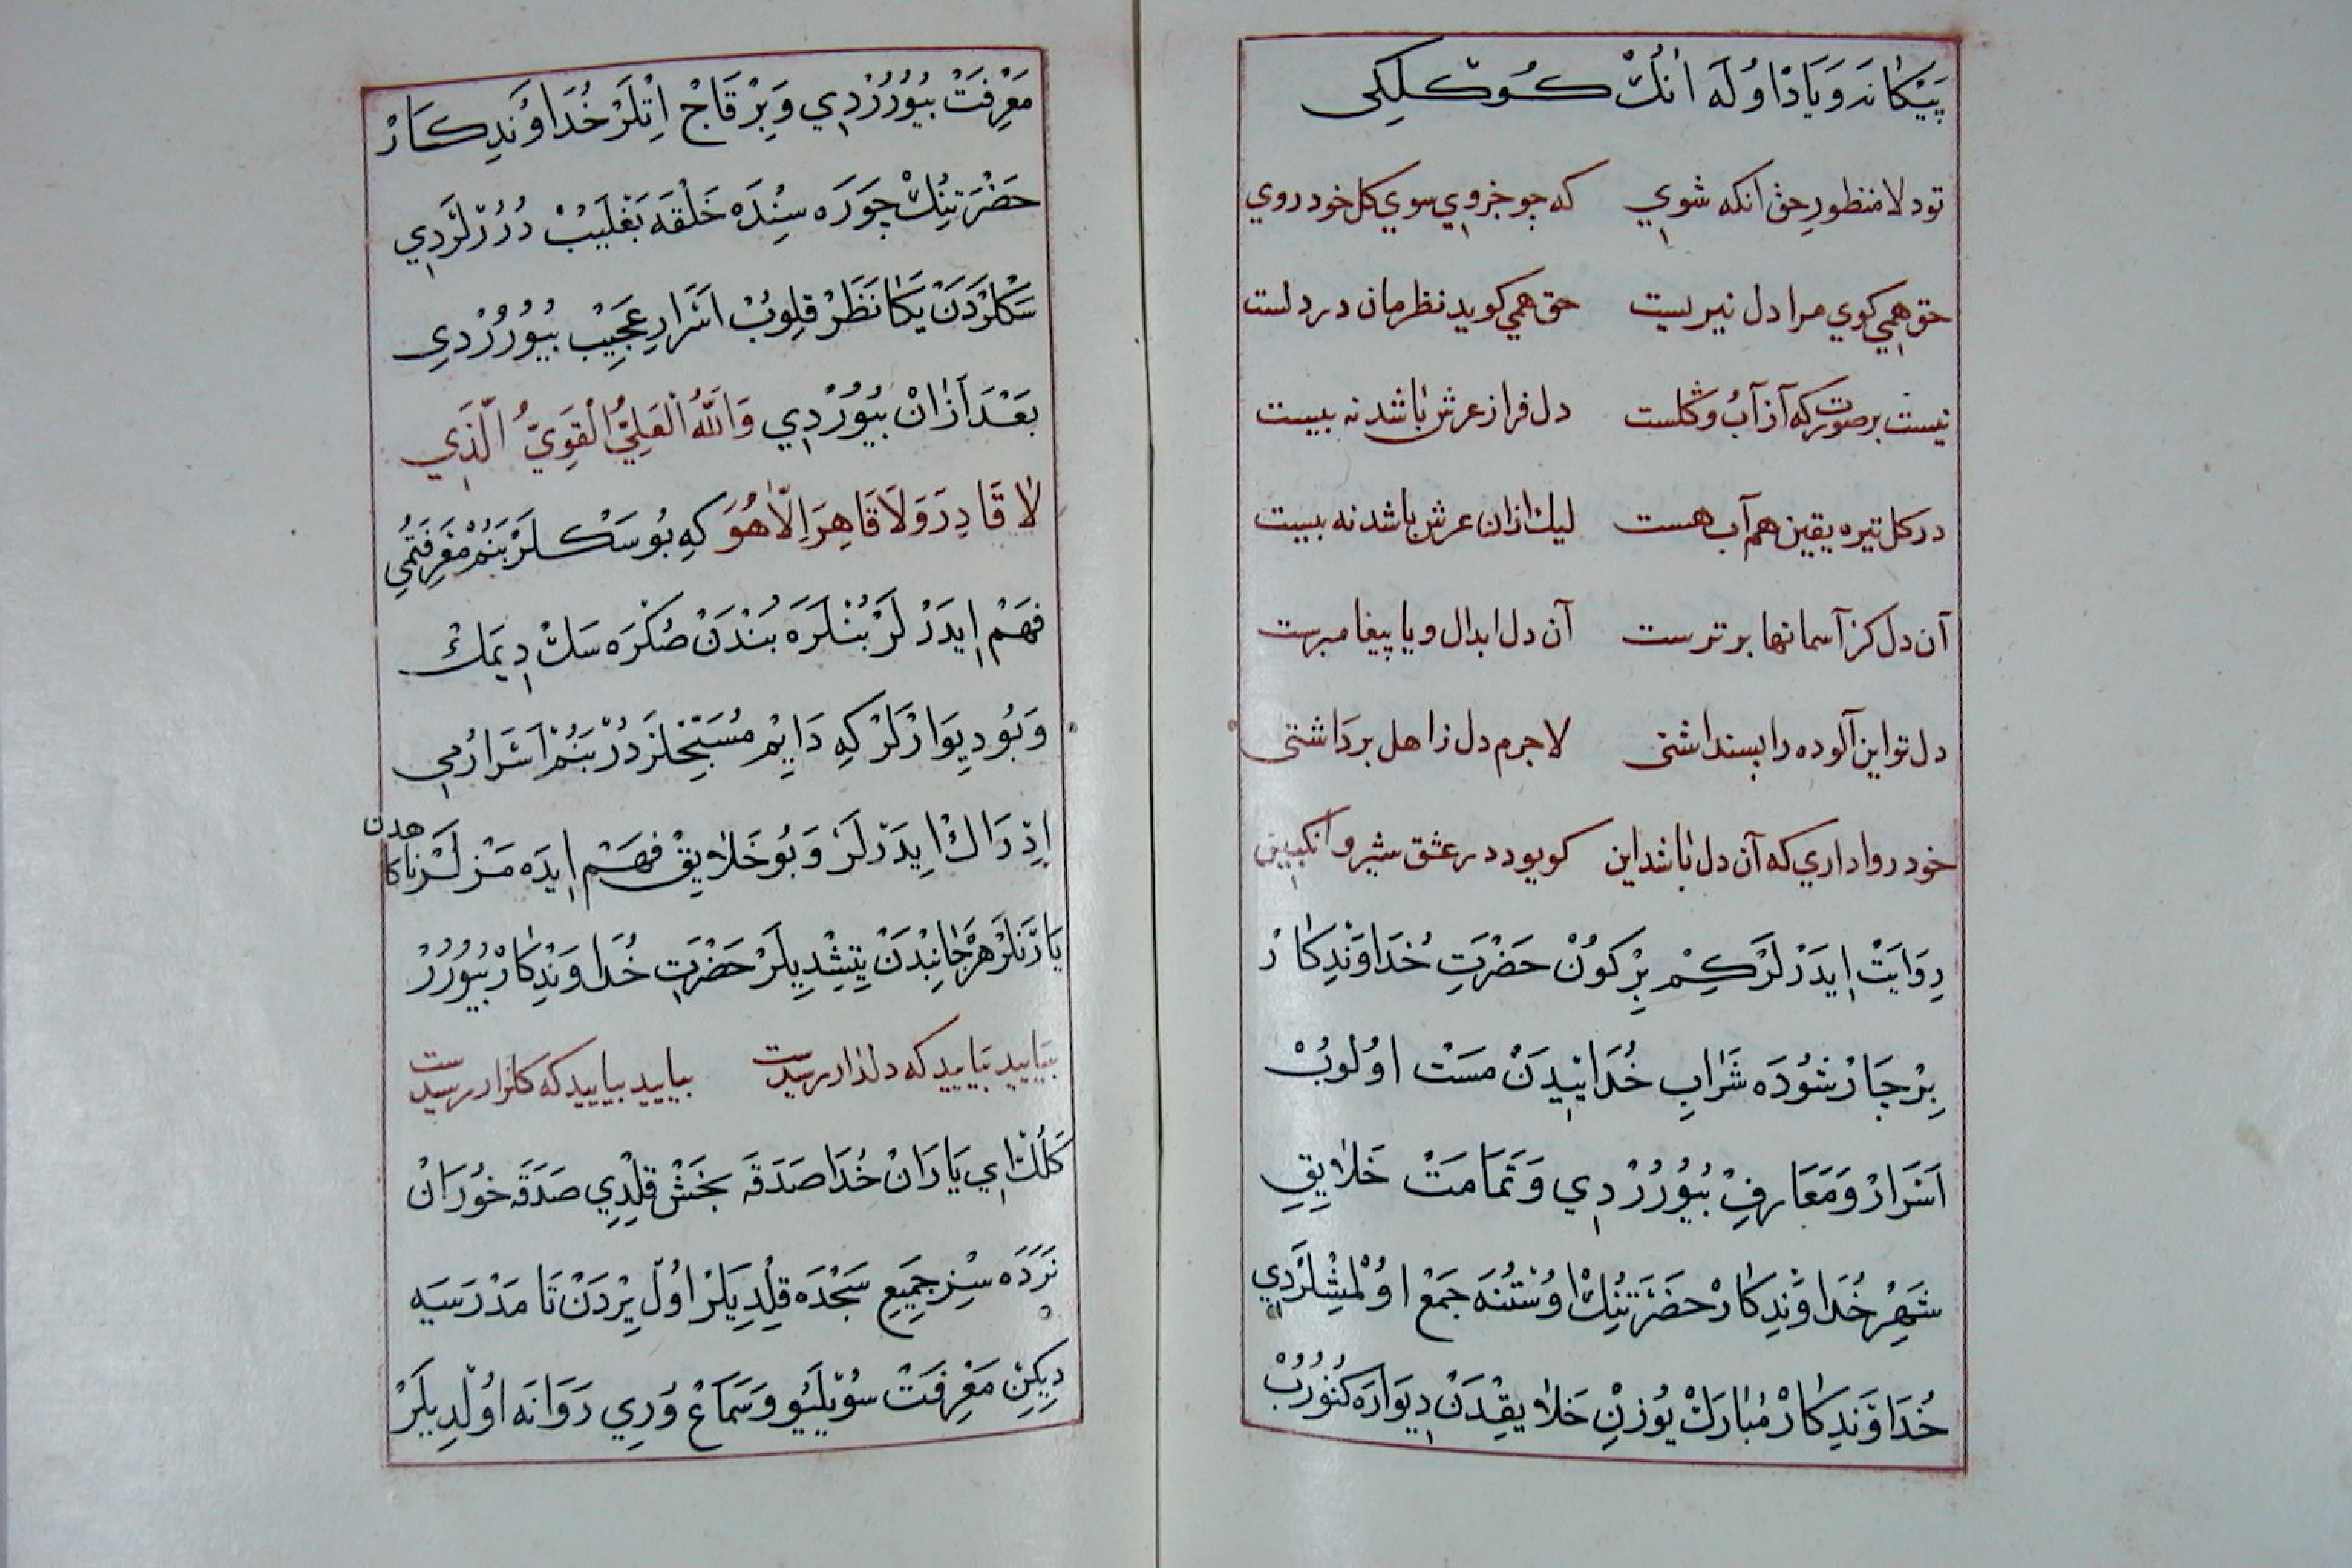 پَيْكَانَه وَيَادْ اوُلَه اَنُكْ كُوكْلِكِى
تو دلا منظورِ حق آنكه شوي كه چو جزوي سوي كل خود روي
حق همي كوي مرا دل نير ليست حق همي كويد نظرمان در دلست
نيست بر صورت كه آز آبُ وكلست دل فراز عرش باشد نه بيست
در كل تيره يقين هم آب هست ليك ازان عرش باشد نه بيست
آن دل كز آسمانها برترست آن دل ابدال ويا پيغامبرست
دل تو اين آلوده را پنداشتى لاجرم دل زاهل برداشتى
خود روا داري كه آن دل باشد اين كو بود در عشق شير و انكبين
رِوَايَتْ اِيدَرْلَرْ كِمْ بِرْ كُونْ حَضْرَتِ خُدَاوَنْدِكَارْ
بِرْ چَارْشُودَه شَرَابِ خُدَايِيدَنْ مَسْتْ اوُلُوبْ
اَسْرَارْ وَمَعَارِفْ بُيُورُرْدِي وَتَمَامَتْ خَلَايِقِ
شَهِرْ خُدَاوَنْدِكَارْ حَضْرَتِنُكْ اوُسْتُنَه جَمْعْ اوُلْمِشْلَرْدِي
خُدَاوَنْدِكَارْ مُبَارَكْ يُوزِنْ خَلَايِقْدَنْ دِيوَارَه كَتُورُبْ
مَعْرِفَتْ بُيُورُرْدِي وَبِرْ قَاجْ اِتْلَرْ خُدَاوَنْدِكَارْ
حَضْرَتِنُكْ چَوْرَه سِنْدَه حَلْقَه بَغْلَيُبْ دُرُرْلَرْدِي
سَكْلَرْدَنْ يَكَا نَظَرْ قِلُوبْ اَسْرَارِ عَجِيبْ بُيُورُرْدِي
بَعْدَ اَزَانْ بُيُورْدِي وَاللّٰهُ الْعَلِيُّ الْقَوِيُّ الَّذِي
لَا قَادِرَ وَلَا قَاهِرَ اِلَّا هُوَ كِه بُو سَكْلَرْ بَنُمْ مَعْرِفَتُمِي
فَهْمْ اِيدَرْلَرْ بُنْلَرَه بُنْدَنْ صُكْرَه سَكْ دِيمَكْ
وَبُو دِيوَارْلَرْ كِه دَايِمْ مُسَبِّحْلَرْدُرْ بَنُمْ اَسْرَارُمِي
اِدْرَاكْ اِيدَرْلَرْ وَبُو خَلَايِقْ فَهْمْ اِيدَه مَزْلَرْ نَاكَاهدن
يَارَنْلَرْ هَرْ جَانِبْدَنْ يِتِشْدِيلَرْ حَضْرَتِ خُدَاوَنْدِكَارْ بُيُورُرْ
بياييد بياييد كه دلدار رسيدست بياييد بياييد كه كلزار رسيدست
كَلُكْ اِي يَارَانْ خُدَا صَدَقَه بَخْشْ قِلْدِي صَدَقَه خُورَانْ
نَرَدَه سِزْ جَمِيعِ سَجْدَه قِلْدِيلَرْ اوُلْ يِرْدَنْ تَا مَدْرَسَيَه
دِيكِنْ مَعْرِفَتْ سُويْلَيُو وَسَمَاعْ وُرِي رَوَانَه اوُلْدِيلَرْ